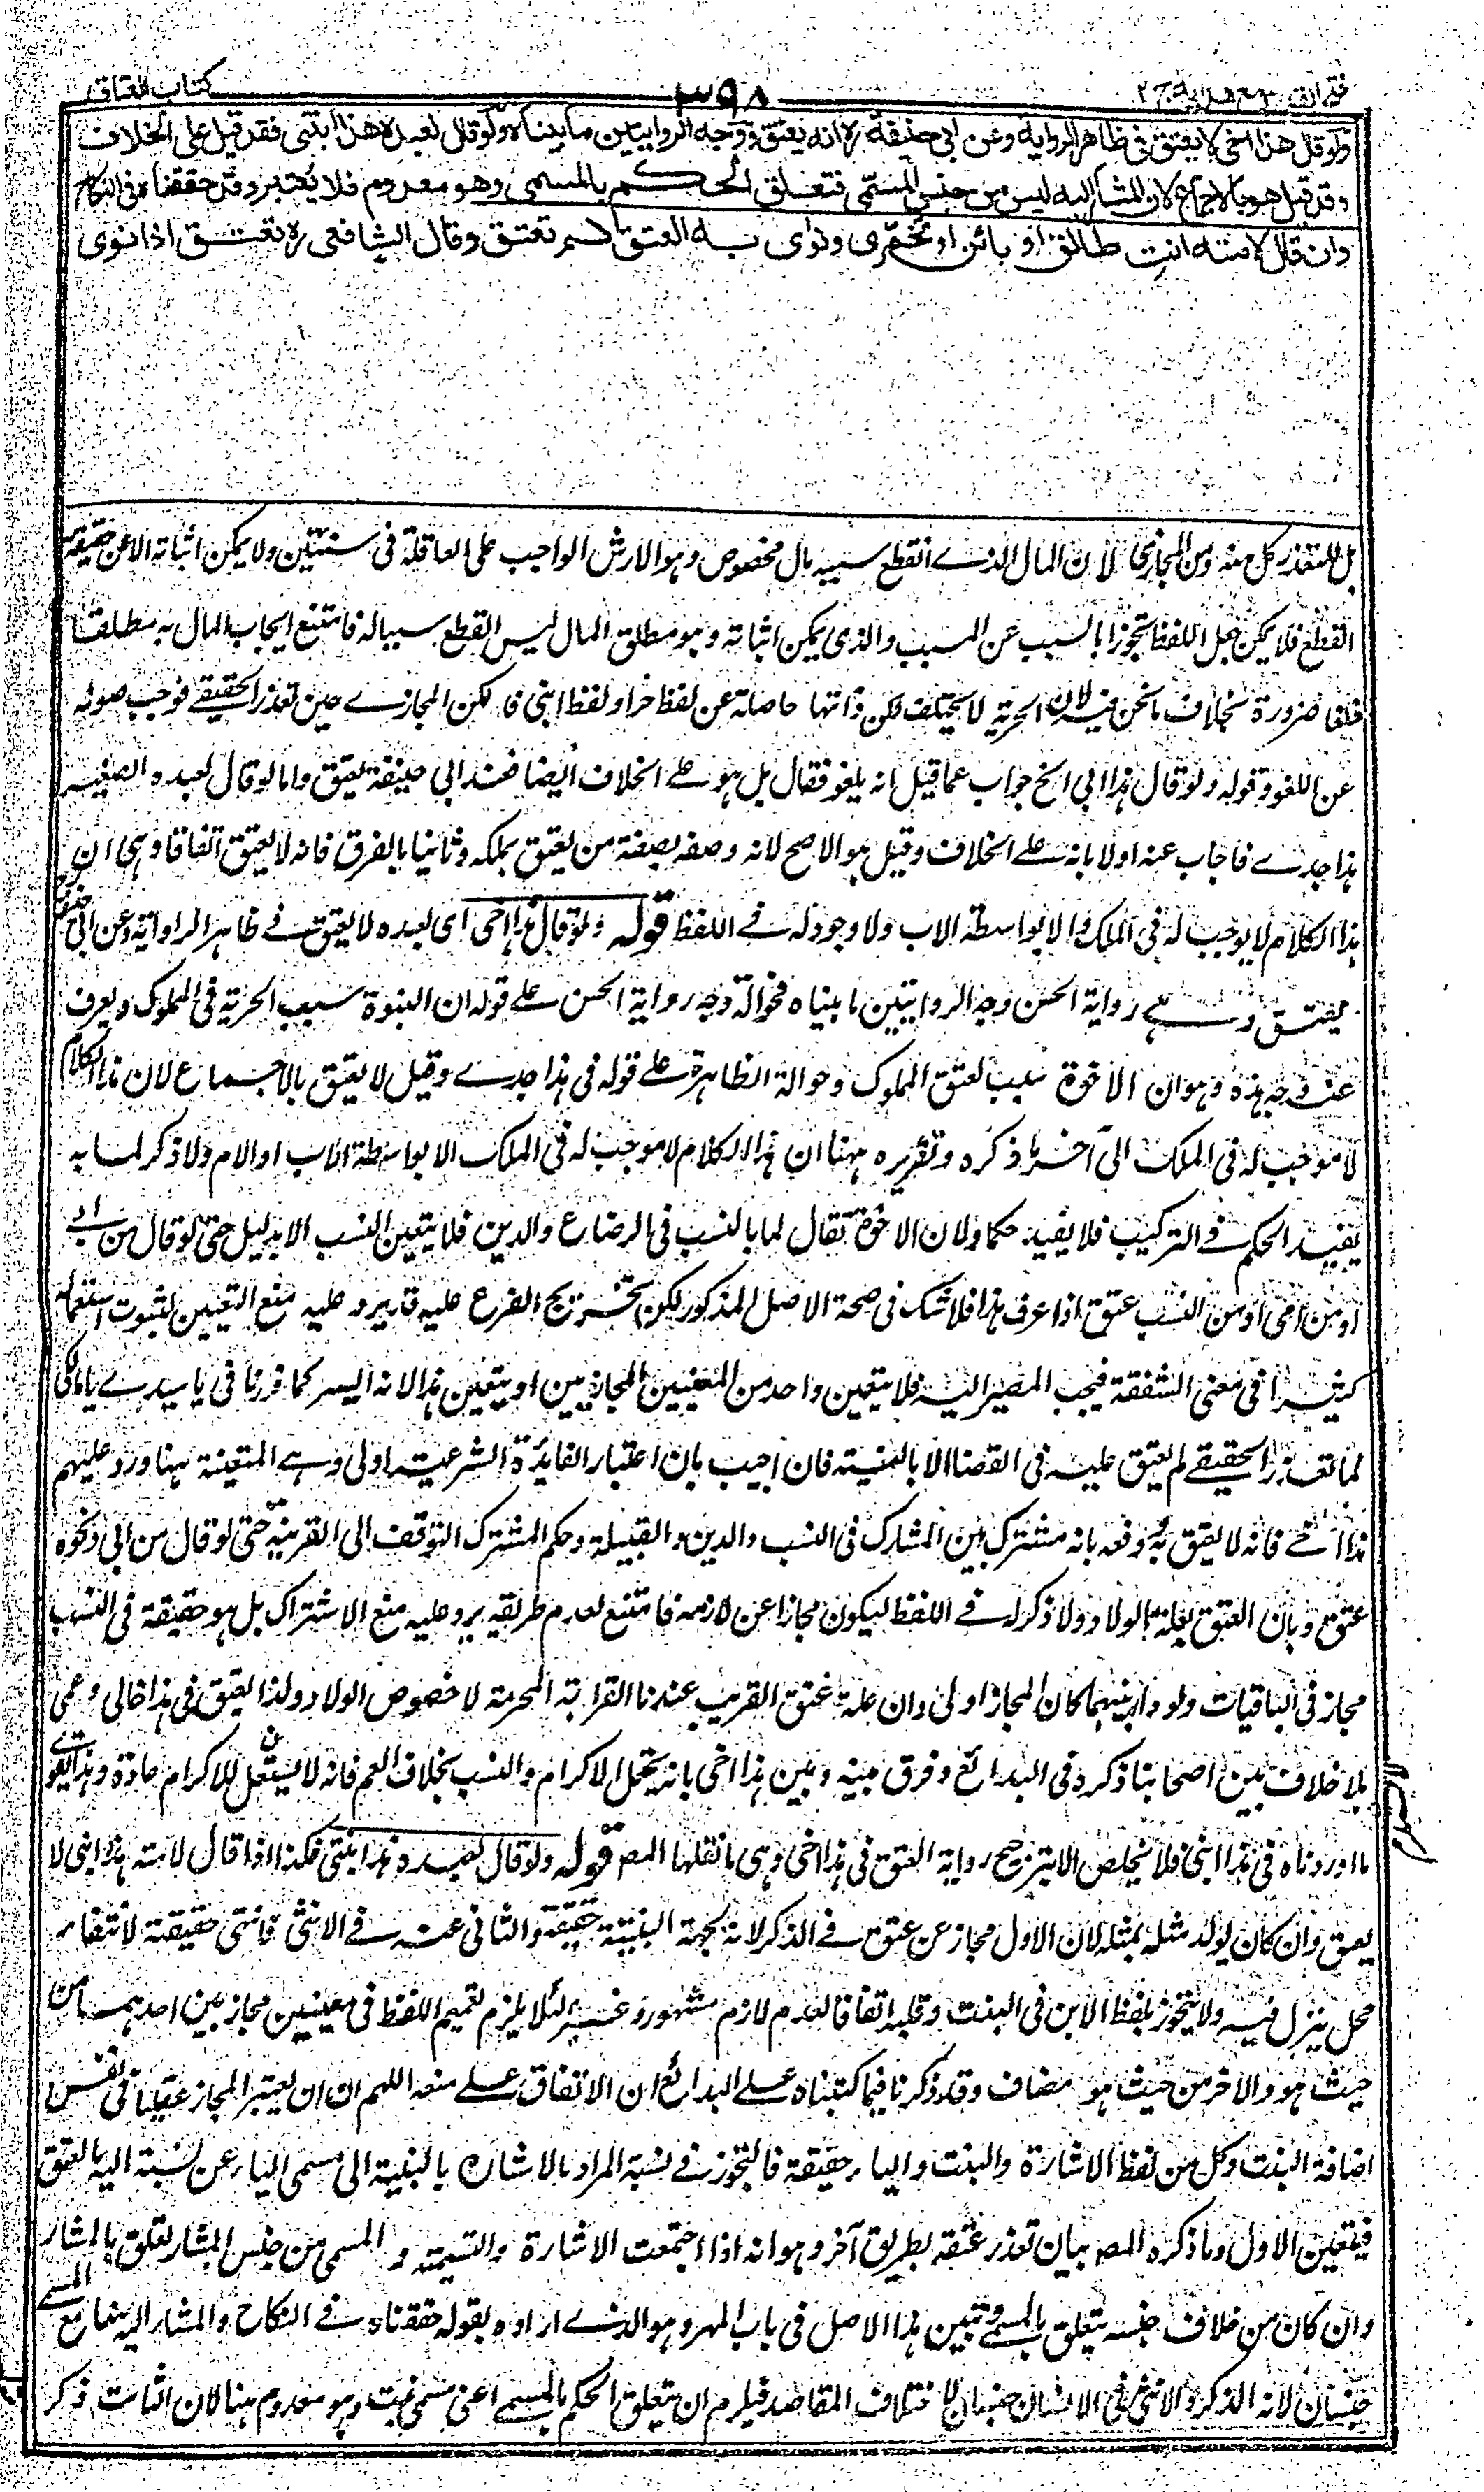 فتح القدير مع هدايه ج ٢
٣٩٨
كتاب العتاق
ولو قال هذا اخى لا يعتق فى ظاهر الرواية وعن ابى حنيفة ره انه يعتق ووجه الروايتين ما بيناه ولو قال لعبده هذا ابنتى فقد قيل على الخلاف
وقد قيل هو بالاجماع لان المشار اليه ليس من جنس المسمّى فتعلق الحكم بالمسمى وهو معدوم فلا يُعتبر وقد حققناه فى النكاح
وان قال لامته انتِ طالق او بائن او تخمّرى ونوى به العتق لم تعتق وقال الشافعى ره تعتق اذا نوى
بل للتعذر كل منه ومن المجازى لان المال الذے انقطع سببه مال مخصوص وهو الارش الواجب على العاقلة فى سنتين ولا يمكن اثباته الا عن حقيقة
القطع فلا يمكن جعل اللفظ تجوزا بالسبب عن المسبب والذى يمكن اثباته وهو مطلق المال ليس القطع سببا له فامتنع ايجاب المال به مطلقا
فلغا ضرورة بخلاف ما نحن فيه لان الحرية لا يختلف لكن ذاتها حاصلة عن لفظ حر او لفظ ابنى فامكن المجازے حين تعذر الحقيقے فوجب صونه
عن اللغو وقوله ولو قال هذا ابى الخ جواب عما قيل انه يلغو فقال بل هو علے الخلاف ايضا فعند ابى حنيفة يعتق واما لو قال لعبده الصغير
هذا جدے فاجاب عنه اولا بانه علے الخلاف وقيل هو الاصح لانه وصفه بصفة من يعتق بملكه وثانيا بالفرق فانه لا يعتق اتفاقا وهى ان
هذا الكلام لا يوجب له فى الملك الا بواسطة الاب ولا وجود له فے اللفظ قوله ولو قال هذا اخى اى لعبده لا يعتق فے ظاهر الرواية وعن ابى حنيفة
يعتق وهے رواية الحسن وجه الروايتين ما بيناه فحوالة وجه رواية الحسن علے قوله ان البنوة سبب الحرية فى المملوك ويعرف
عنه وجه هذه وهو ان الاخوة سبب لعتق المملوك وحوالة الظاهرة علے قوله فى هذا جدے وقيل لا يعتق بالاجماع لان هذا الكلام
لا موجب له فى الملك الى آخر ما ذكره وتقريره ههنا ان هذا الكلام لا موجب له فى الملك الا بواسطة الاب او الام ولا ذكر لما به
يفيد الحكم فے التركيب فلا يفيد حكما ولان الاخوة تقال لما بالنسب فى الرضاع والدين فلا يتعين النسب الا بدليل حتى لو قال من ابى
او من امى او من النسب عتق اذا عرف هذا فلا شك فى صحة الاصل المذكور لكن تخريج الفرع عليه قد يرد عليه منع التعيين لثبوت استعماله
كثيرا فى معنى الشفقة فيجب المصير اليه فلا يتعين واحد من المعنيين المجازيين او يتعين هذا لانه ايسر كما قررنا فى يا سيدے يا مالكى
لما تعذر الحقيقے لم يعتق عليه فى القضا الا بالنية فان اجيب بان اعتبار الفايدة الشرعية اولى وهے المتعينة ههنا ورد عليهم
هذا اخے فانه لا يعتق به ودفعه بانه مشترك بين المشارك فى النسب والدين والقبيلة وحكم المشترك التوقف الى القرينة حتى لو قال من ابى ونحوه
عتق وبان العتق بعلة الولاد ولا ذكر له فے اللفظ ليكون مجازا عن لازمه فامتنع لعدم طريقه يرد عليه منع الاشتراك بل هو حقيقة فى النسب
مجاز فى الباقيات ولو دار بينهما كان المجاز اولى وان علة عتق القريب عندنا القرابة المحرمة لا خصوص الولاد ولذا يعتق فى هذا خالى وعمى
بلا خلاف بين اصحابنا ذكره فى البدائع وفرق بينه وبين هذا اخى بانه يحتمل الاكرام والنسب بخلاف العم فانه لا يستعمل للاكرام عادة وهذا يقوے
ما اوردناه فى هذا ابنى فلا يخلص الا بترجيح رواية العتق فى هذا اخى وهى ما نقلها المص قوله ولو قال لعبده هذا ابنتى فكذا اذا قال لامته هذا ابنى لا
يعتق وان كان يولد مثله بمثله لان الاول مجاز عن عتق فے الذكر لانه بجهة البنتية حقيقة والثانى عنه فے الانثى فانتفى حقيقته لانتفاء
محل ينزل فيه ولا يتجوز بلفظ الابن فى البنت وقلبه اتفاقا لعدم لازم مشهور وغيره لئلا يلزم تعميم اللفظ فى معنيين مجازيين احدهما من
حيث هو والاخر من حيث هو مضاف وقد ذكرنا فيما كتبناه علے البدائع ان الاتفاق علے منعه اللهم ان ان يعتبر المجاز عقليا فى نفس
اضافة البنت وكل من لفظ الاشارة والبنت والياء حقيقة فالتجوز فے نسبة المراد بالاشارة بالبنتية الى مسمى الياء عن نسبته اليه بالعتق
فيتعين الاول وما ذكره المص بيان تعذر عتقه بطريق آخر وهو انه اذا اجتمعت الاشارة والتسمية و المسمى من جنس المشار تعلق بالمشار
وان كان من خلاف جنسه يتعلق بالمسمى وتبين هذا الاصل فى باب المهر وهو الذے اراده بقوله حققناه فے النكاح والمشار اليه هنا مع المسمے
جنسان لانه الذكر والانثى فى الانسان جنسان لاختلاف المقاصد فيلزم ان يتعلق الحكم بالمسمے اعنى مسمى بنت وهو معدوم هنا لان الثابت ذكر